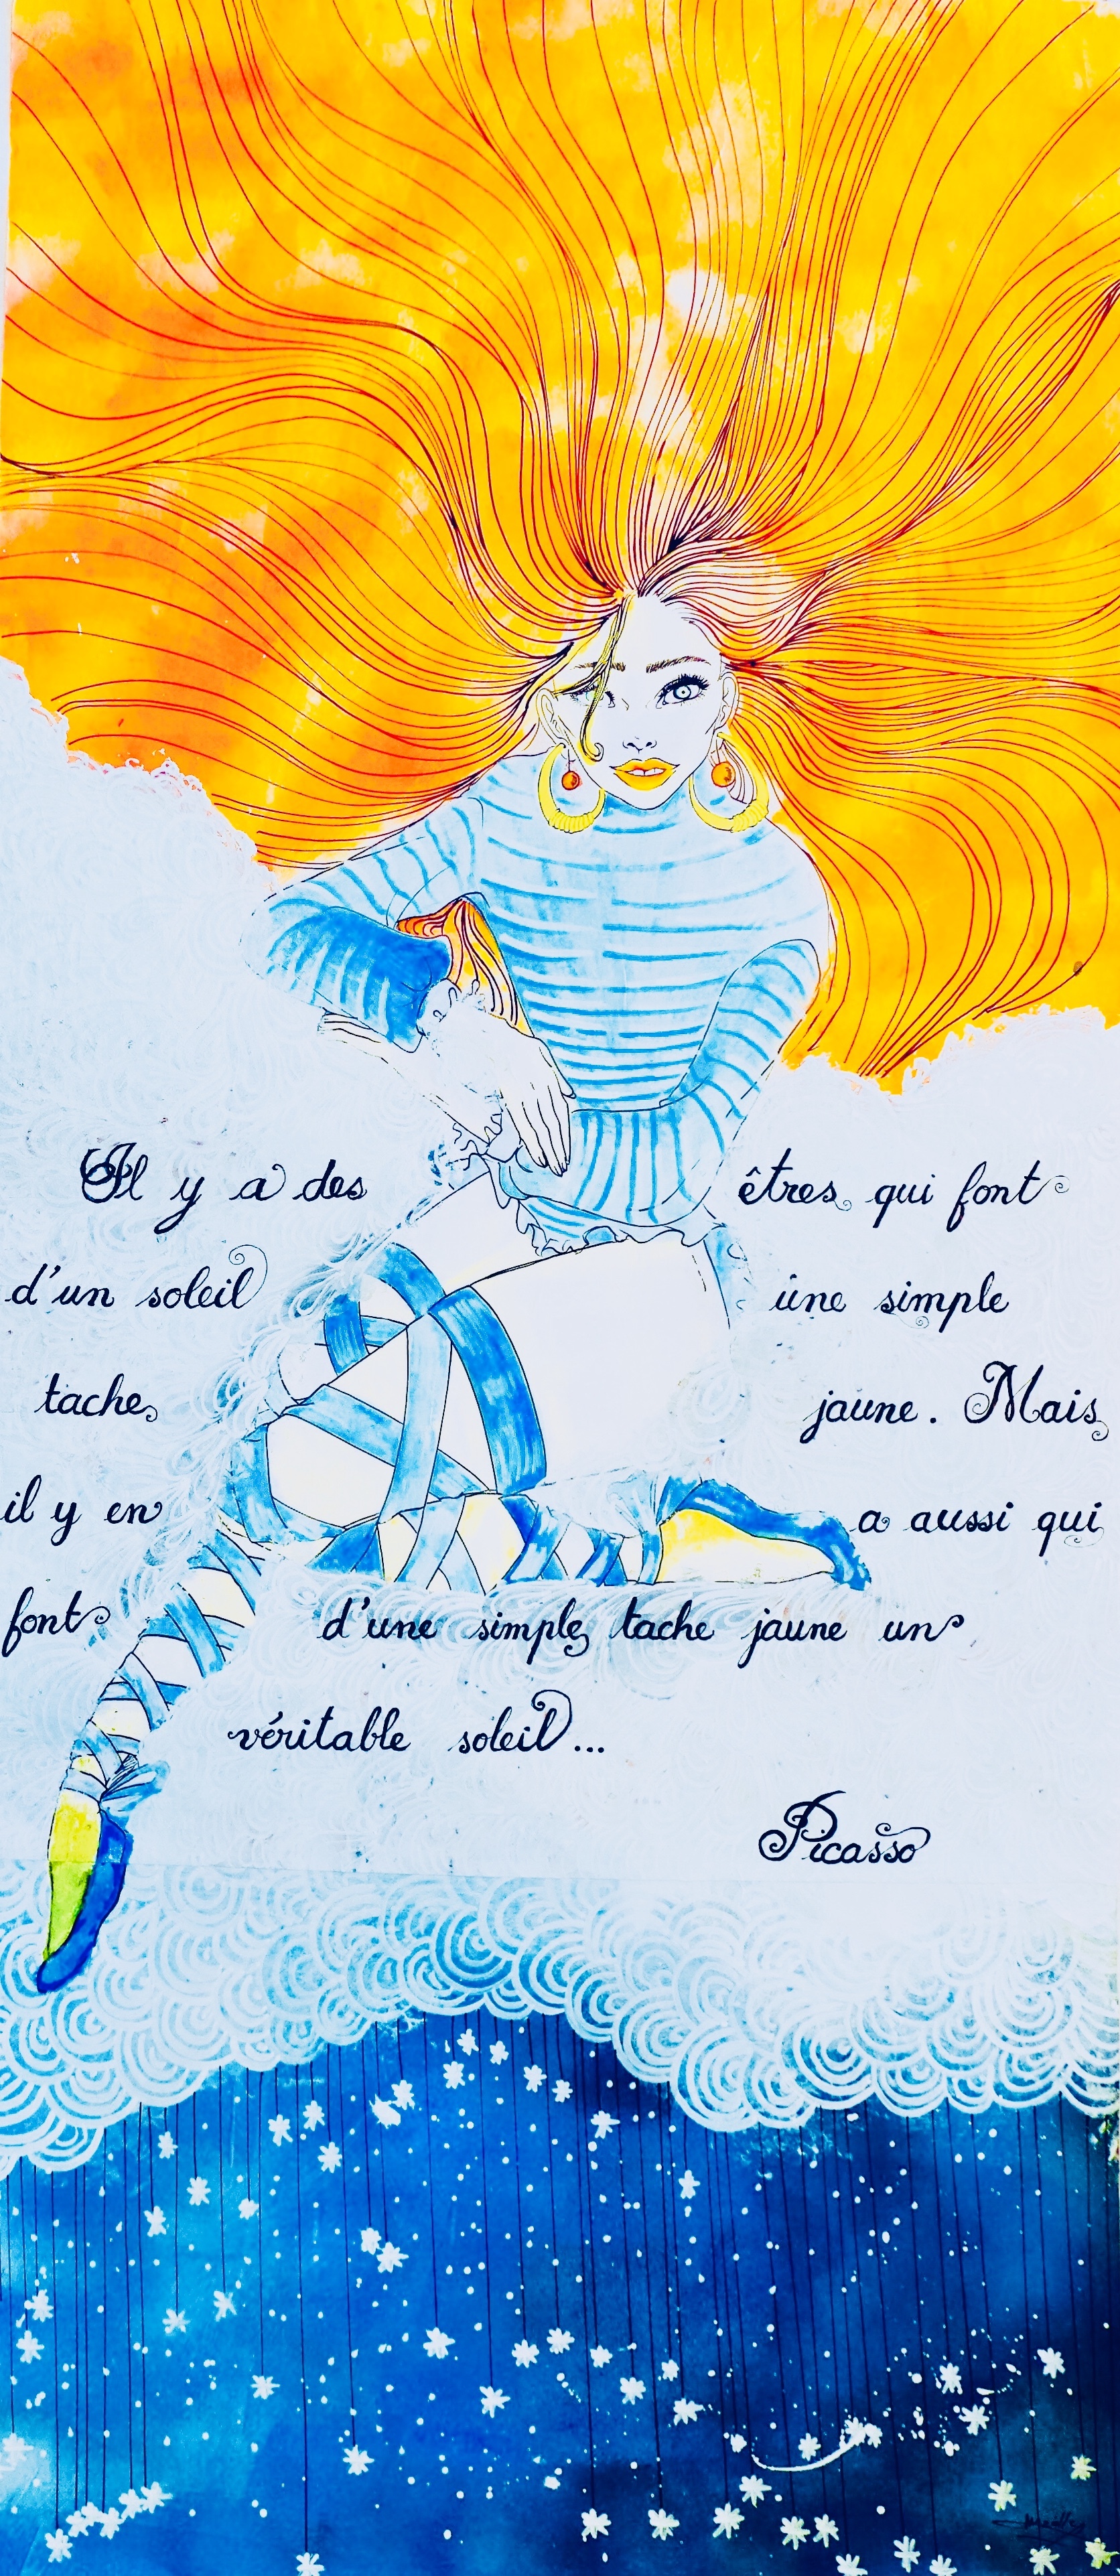 Il y a des êtres qui font
d'un soleil une simple
tache jaune. Mais
il y en a aussi qui
font d'une simple tache jaune un
véritable soleil...
Picasso